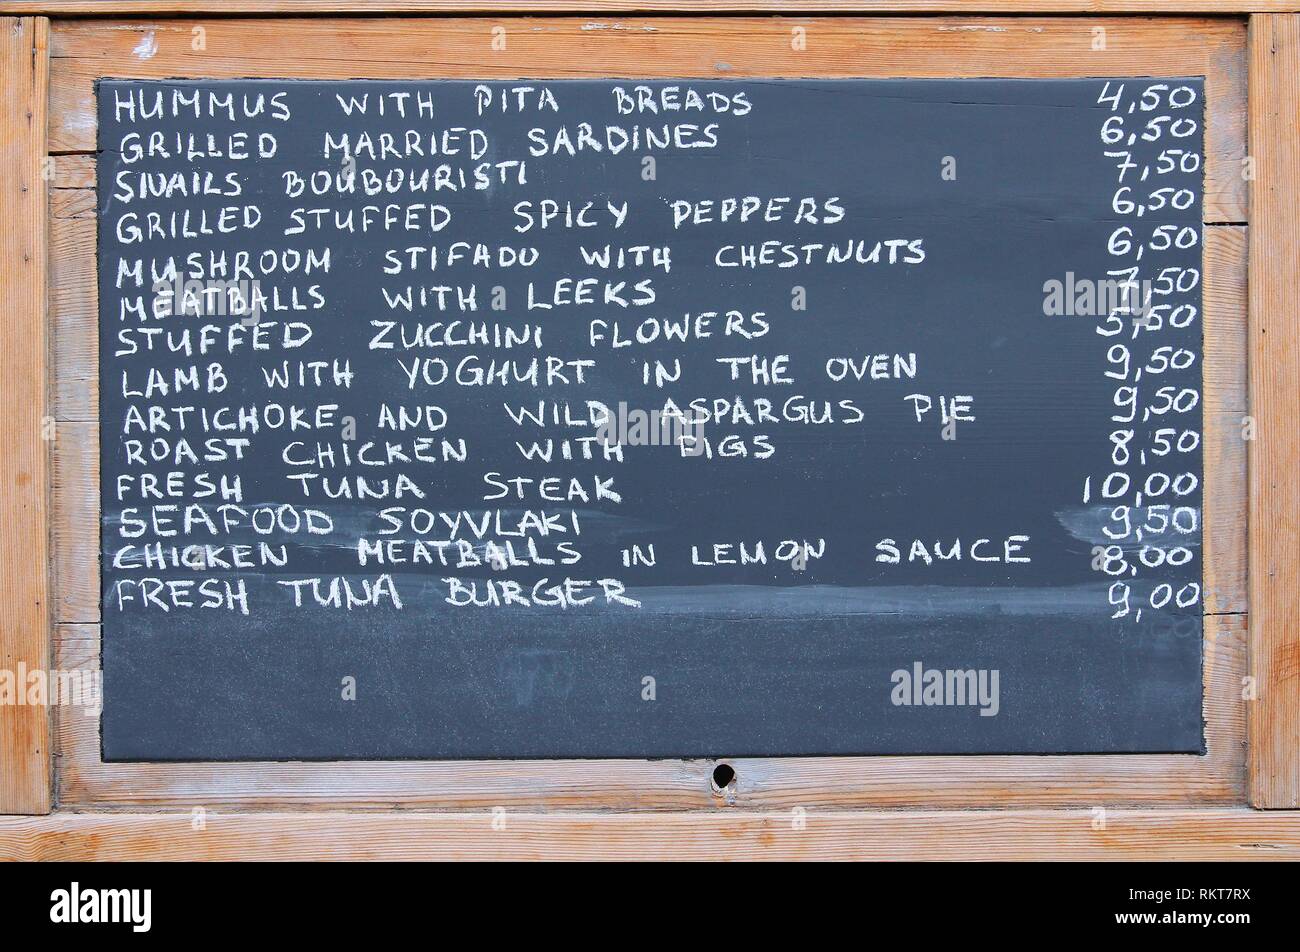 HUMMUS WITH PITA BREADS 4,50
GRILLED MARRIED SARDINES 6,50
SNAILS BOUBOURISTI 7,50
GRILLED STUFFED SPICY PEPPERS 6,50
MUSHROOM STIFADO WITH CHESTNUTS 6,50
MEATBALLS WITH LEEKS 7,50
STUFFED ZUCCHINI FLOWERS 5,50
LAMB WITH YOGHURT IN THE OVEN 9,50
ARTICHOKE AND WILD ASPARGUS PIE 9,50
ROAST CHICKEN WITH FIGS 8,50
FRESH TUNA STEAK 10,00
SEAFOOD SOYVLAKI 9,50
CHICKEN MEATBALLS IN LEMON SAUCE 8,00
FRESH TUNA BURGER 9,00
alamy
alamy
alamy
a alamy
Image ID: RKT7RX
www.alamy.com